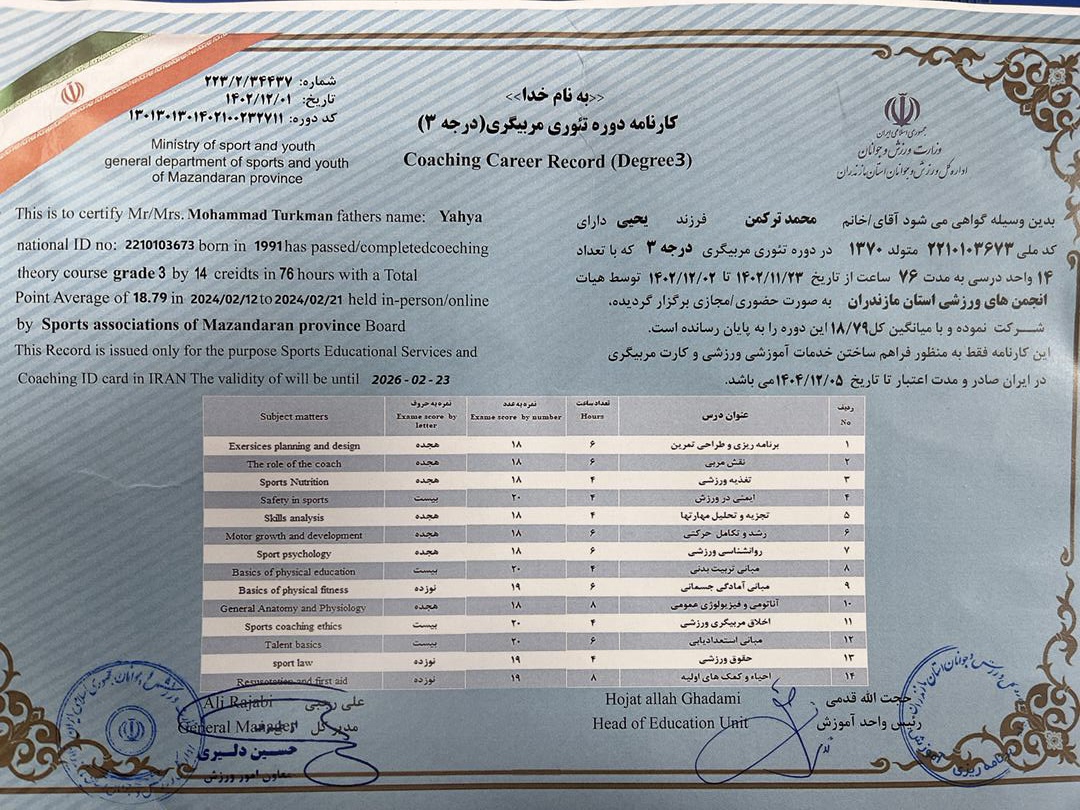 شماره: ۲۲۳/۲/۳۴۴۳۷
تاریخ: ۱۴۰۲/۱۲/۰۱
کد دوره: ۱۳۰۱۳۰۱۳۰۱۴۰۲۱۰۰۲۳۲۷۱۱
Ministry of sport and youth
general department of sports and youth
of Mazandaran province
<<به نام خدا>>
کارنامه دوره تئوری مربیگری(درجه ۳)
Coaching Career Record (Degree3)
جمهوری اسلامی ایران
وزارت ورزش و جوانان
اداره کل ورزش و جوانان استان مازندران
This is to certify Mr/Mrs. Mohammad Turkman fathers name: Yahya
national ID no: 2210103673 born in 1991 has passed/completedcoeching
theory course grade 3 by 14 creidts in 76 hours with a Total
Point Average of 18.79 in 2024/02/12 to 2024/02/21 held in-person/online
by Sports associations of Mazandaran province Board
This Record is issued only for the purpose Sports Educational Services and
Coaching ID card in IRAN The validity of will be until 2026-02-23
بدین وسیله گواهی می شود آقای/خانم محمد ترکمن فرزند یحیی دارای
کد ملی ۲۲۱۰۱۰۳۶۷۳ متولد ۱۳۷۰ در دوره تئوری مربیگری درجه ۳ که با تعداد
۱۴ واحد درسی به مدت ۷۶ ساعت از تاریخ ۱۴۰۲/۱۱/۲۳ تا ۱۴۰۲/۱۲/۰۲ توسط هیات
انجمن های ورزشی استان مازندران به صورت حضوری/مجازی برگزار گردیده،
شرکت نموده و با میانگین کل۱۸/۷۹ این دوره را به پایان رسانده است.
این کارنامه فقط به منظور فراهم ساختن خدمات آموزشی ورزشی و کارت مربیگری
در ایران صادر و مدت اعتبار تا تاریخ ۱۴۰۴/۱۲/۰۵می باشد.
Subject matters نمره به حروف Exame score by letter نمره به عدد Exame score by number تعداد ساعت Hours عنوان درس ردیف No
Exersices planning and design هجده ۱۸ ۶ برنامه ریزی و طراحی تمرین ۱
The role of the coach هجده ۱۸ ۶ نقش مربی ۲
Sports Nutrition هجده ۱۸ ۴ تغذیه ورزشی ۳
Safety in sports بیست ۲۰ ۴ ایمنی در ورزش ۴
Skills analysis هجده ۱۸ ۴ تجزیه و تحلیل مهارتها ۵
Motor growth and development هجده ۱۸ ۶ رشد و تکامل حرکتی ۶
Sport psychology هجده ۱۸ ۶ روانشناسی ورزشی ۷
Basics of physical education بیست ۲۰ ۴ مبانی تربیت بدنی ۸
Basics of physical fitness نوزده ۱۹ ۶ مبانی آمادگی جسمانی ۹
General Anatomy and Physiology هجده ۱۸ ۸ آناتومی و فیزیولوژی عمومی ۱۰
Sports coaching ethics بیست ۲۰ ۴ اخلاق مربیگری ورزشی ۱۱
Talent basics بیست ۲۰ ۶ مبانی استعدادیابی ۱۲
sport law نوزده ۱۹ ۴ حقوق ورزشی ۱۳
and first aid نوزده ۱۹ ۸ احیاء و کمک های اولیه ۱۴
Ali Rajabi علی رجبی
General Manager مدیر کل
حسین دلیری
معاون امور ورزش
Hojat allah Ghadami حجت الله قدمی
Head of Education Unit رییس واحد آموزش